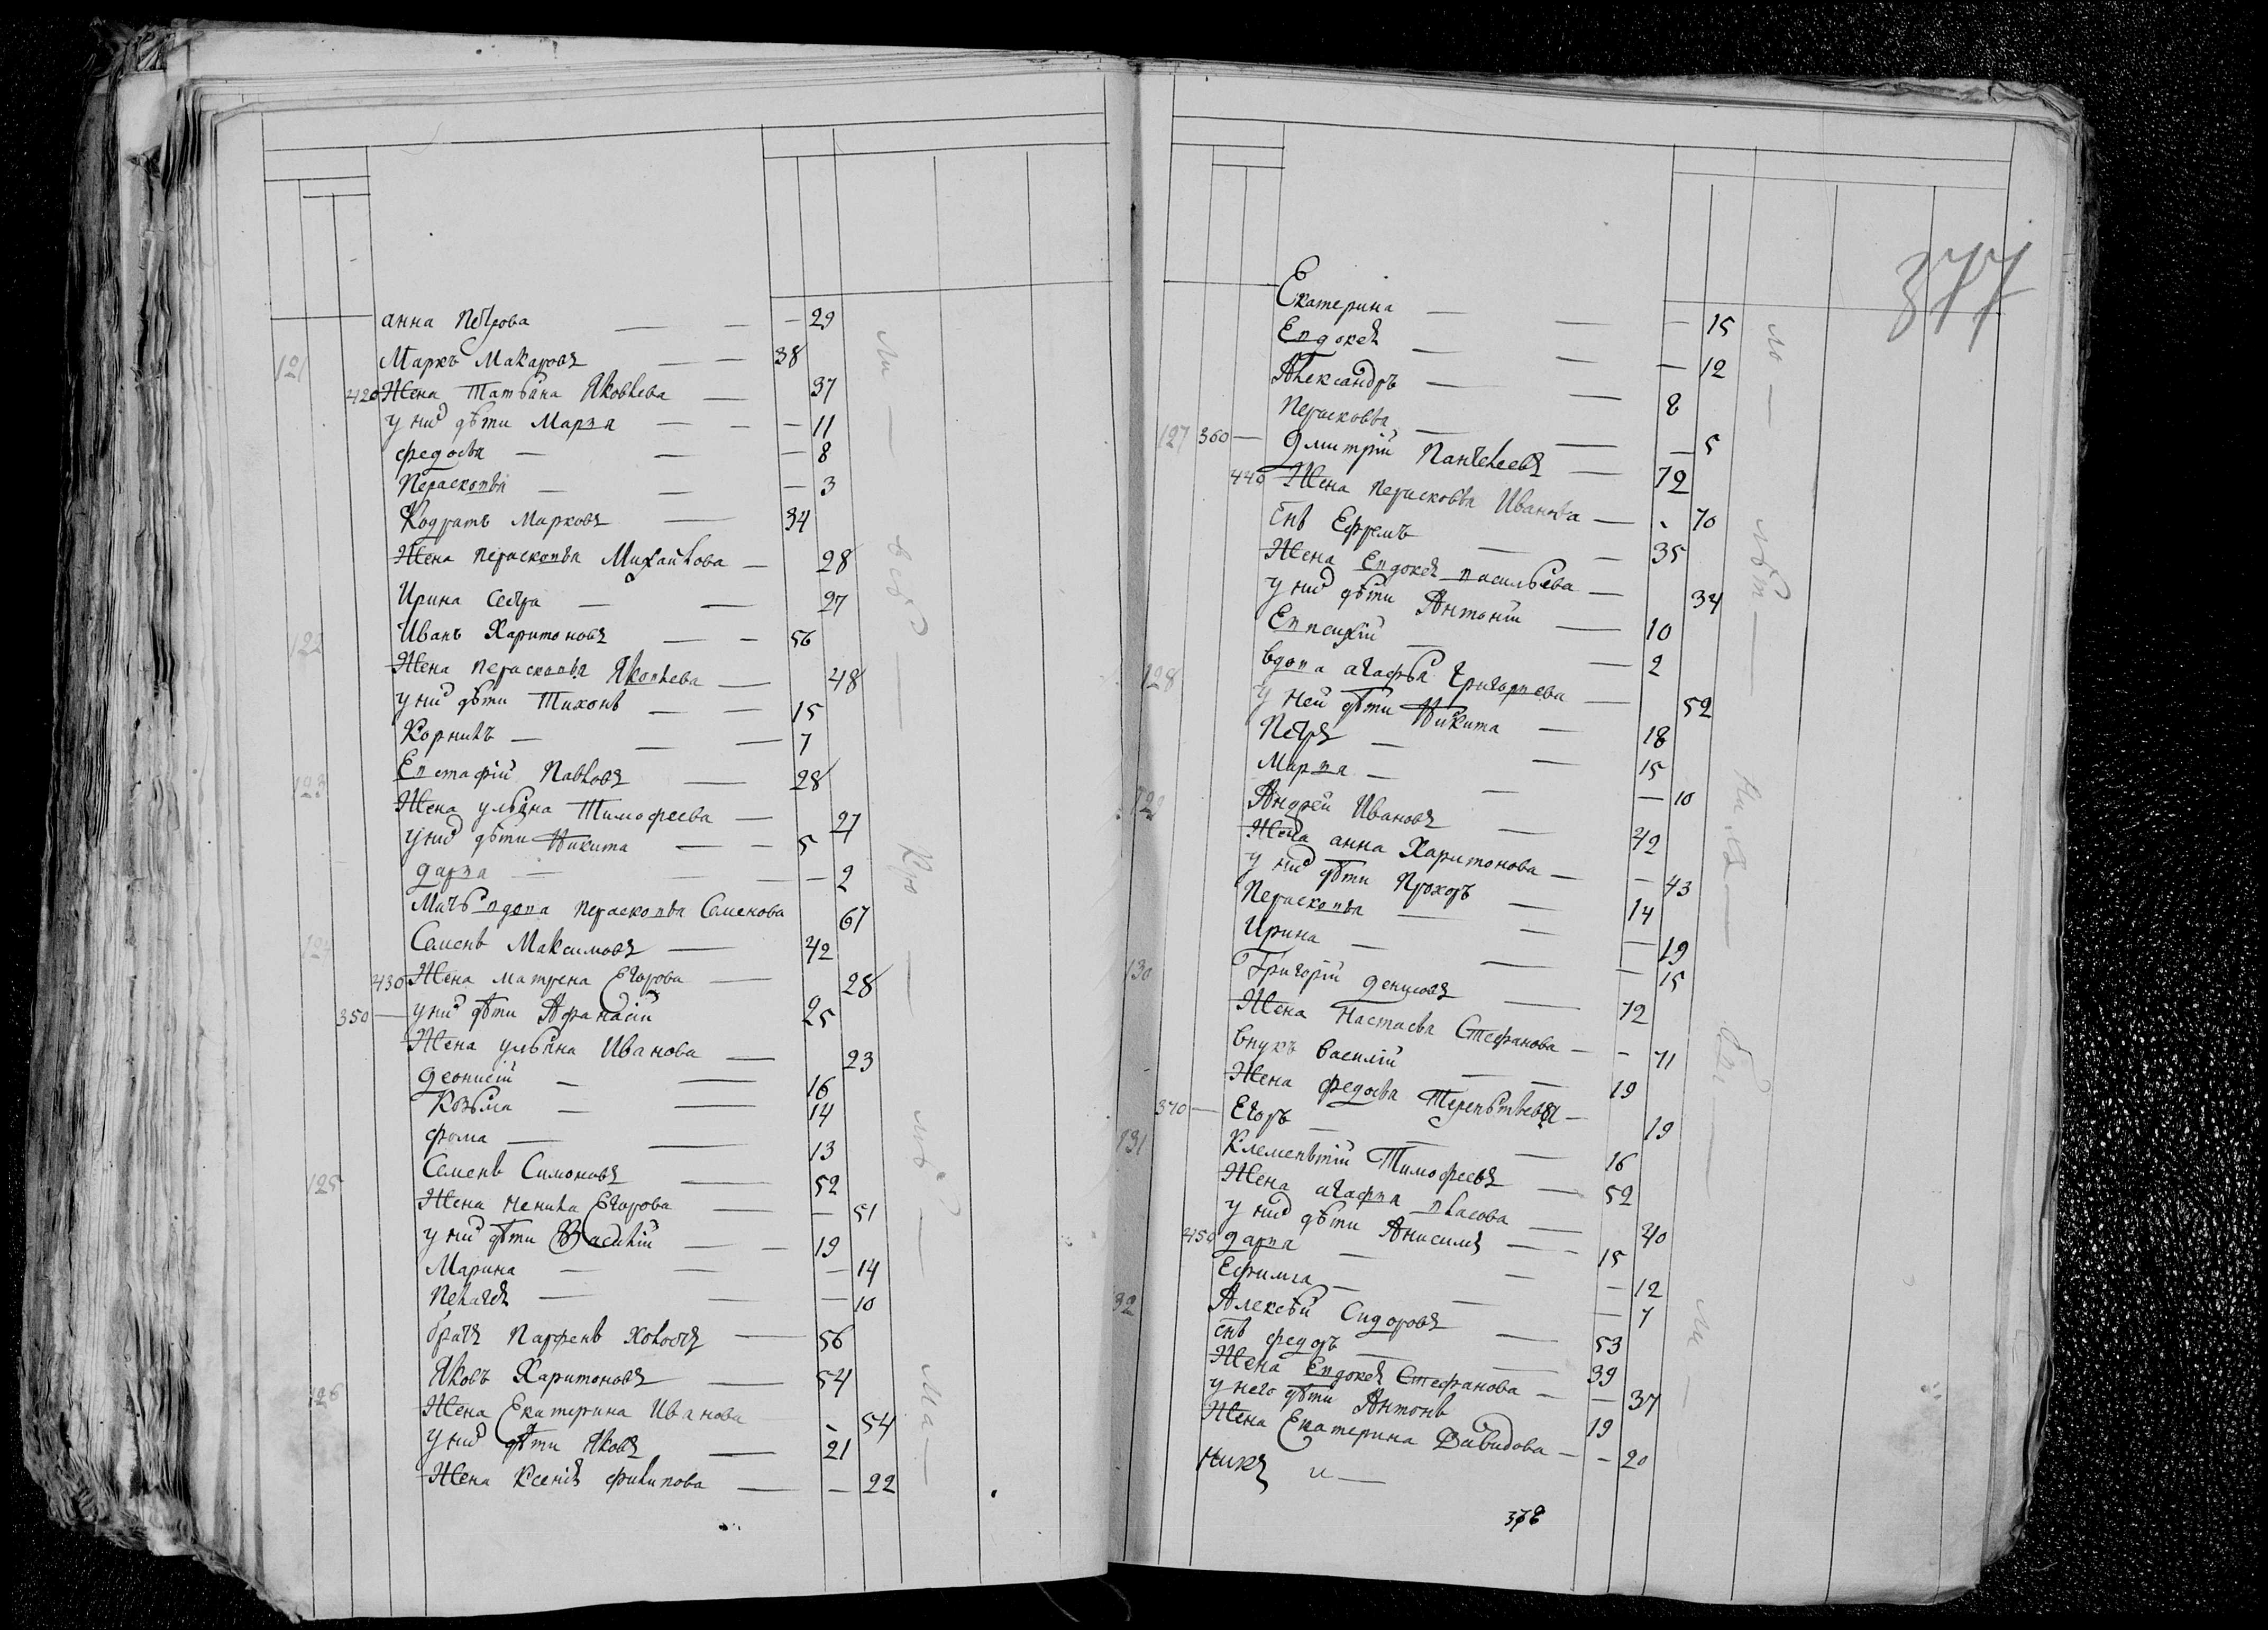 анна Петрова — — — 29
121 Маркъ Макаровъ — — 38
420 Жена Татьяна Яковлева — 37
у них дѣти Марѳа — — — 11
федосья — — — 8
Перасковья — — — 3
Кодратъ Марковъ — 34
Жена перасковья Михайлова — 28
Ирина сестра — — 27
122 Иванъ Харитоновъ — — 56
Жена перасковья Яковлева — 48
у них дѣти Тихонъ — — 15
Корнилъ — — — 7
123 Евстафій Павловъ — 28
Жена ульяна Тимофеева — 27
у них дѣти Никита — — 5
дарья — — — — 2
Мать вдова перасковья Семенова 67
124 Семенъ Максимовъ — 42
430 Жена матрена Егорова — 28
350 — у них дѣти Афанасій 25
Жена ульяна Иванова — 23
деонисій — — 16
Козьма — — 14
фома — — 13
125 Семенъ Симоновъ — 52
Жена ненила Егорова — — 51
у них дѣти Василій — — 19
Марина — — — 14
Пелагея — — — 10
братъ Парфенъ — 56
126 Яковъ Харитоновъ — 54
Жена Екатерина Иванова - 54
у них дѣти Яковъ — 21
Жена Ксения филипова — — 22
ли — всѣх — Кро — лѣ — ма —
377
Екатерина — — — 15
Евдокея — — — 12
Александръ — — 8
Перасковья — — — 5
127 360 — Дмитрій Пантелеевъ — 72
440 Жена перасковья Иванова — - 70
снъ Ефремъ — — 35
Жена Евдокея васильева — 34
у них дѣти Антоній — 10
Евсигній — — 2
128 вдова агафья григорьева — 52
у ней дѣти Никита — 18
Петръ — — 15
Марѳа — — — 10
129 Андрей Ивановъ — 42
Жена анна Харитонова — — 43
у них дѣти Прохоръ — 14
Перасковья — — — 19
Ирина — — — 15
130 Григорій денисовъ — 72
Жена Настасья Стефанова — - 71
внукъ василій — — 19
Жена федосья Терентьева — 19
370 — Егоръ — — 16
131 Клементій Тимофеевъ — 52
Жена агафья власова — 40
у них дѣти Анисимъ — - 15
450 дарья — — — 12
Ефимия — — — 7
132 Алексѣй Сидоровъ — 53
снъ федоръ — — 39
Жена Евдокея Стефанова — — 37
у него дѣти Антонъ 19
Жена Екатерина Давидова — - 20
никъ и —
378